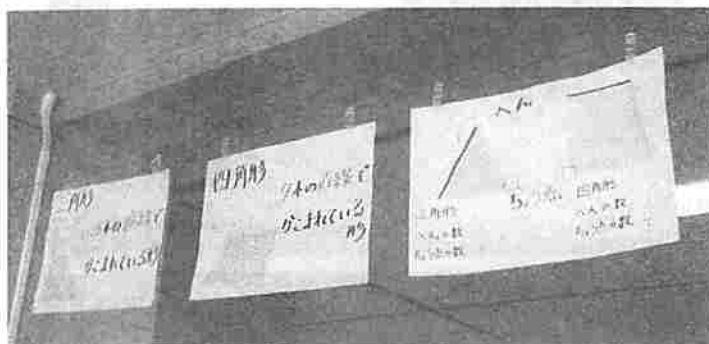 三角形
3本の直線で
かこまれている形
四角形
4本の直線で
かこまれている
形
へん
ちょう点
三角形
へんの数
ちょう点の数
四角形
へんの数
ちょう点の数